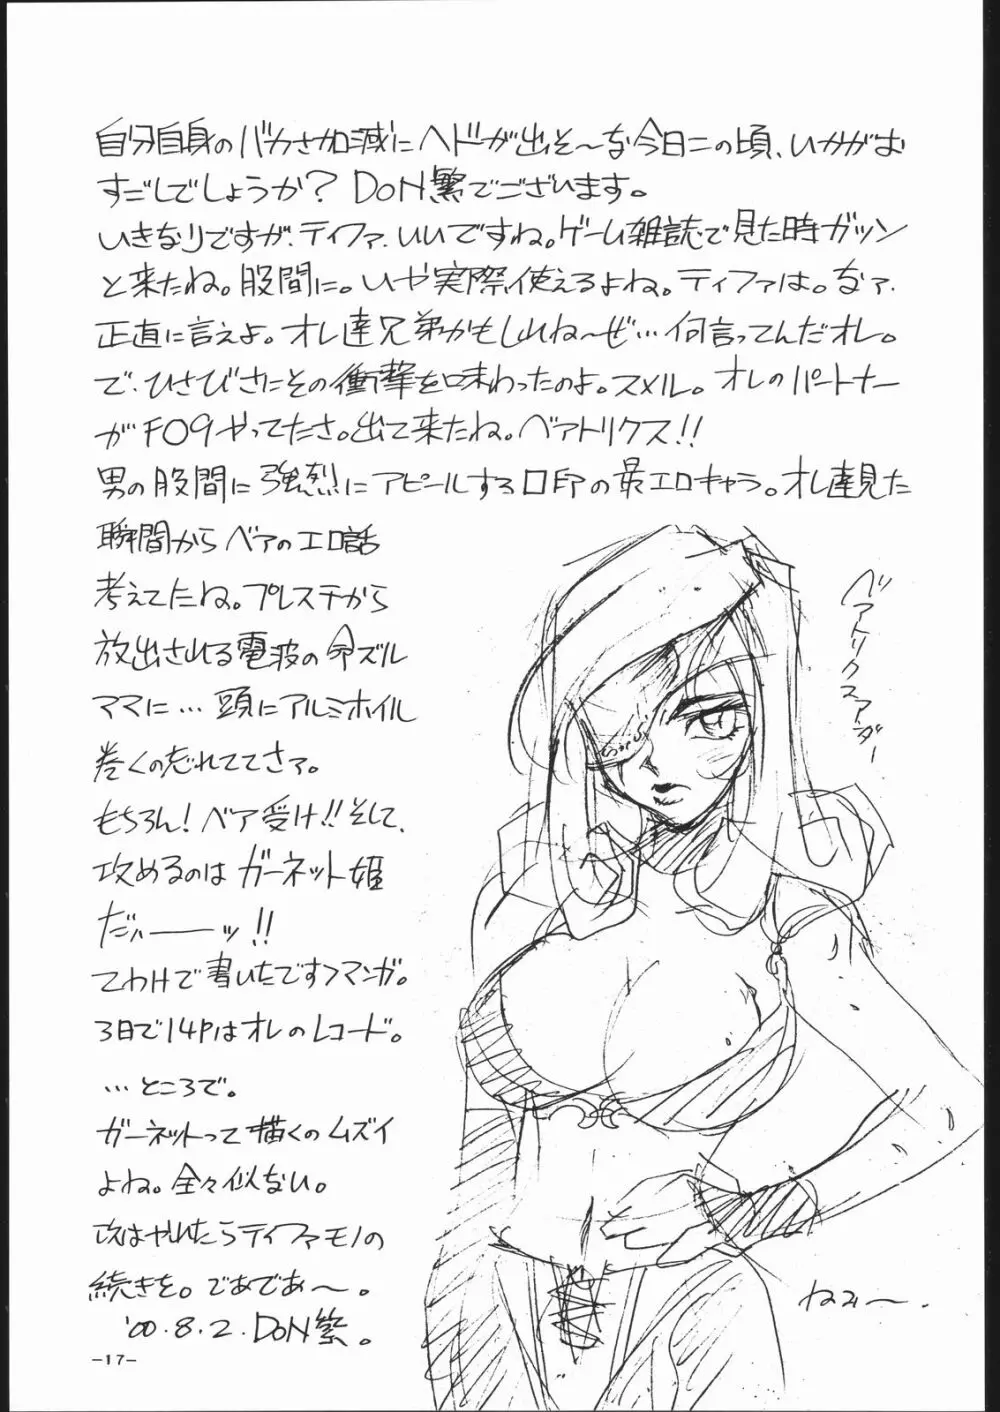 自分自身のバカさ加減にヘドが出そ〜な今日この頃、いかがお
すごしでしょうか？ DoN繁でございます。
いきなりですが、ティファ、いいですね。ゲーム雑誌で見た時ガツン
と来たね。股間に。いや実際使えるよね。ティファは。なァ、
正直に言えよ。オレ達兄弟かもしれね〜ぜ…何言ってんだオレ。
で、ひさびさにその衝撃を味わったのよ。スメル。オレのパートナー
がFO9やってたさ。出て来たね。ベアトリクス!!
男の股間に強烈にアピールする口印の最エロキャラ。オレ達見た
瞬間からベアのエロ話
考えてたね。プレステから
放出される電波の命ズル
ママに…頭にアルミホイル
巻くの忘れててさァ。
もちろん！ベア受け!!そして、
攻めるのはガーネット姫
だァーーッ!!
てわけで書いたですマンガ。
3日で14Pはオレのレコード。
…ところで。
ガーネットって描くのムズイ
よね。全々似ない。
次はやれたらティファモノの
続きを。であであ〜。
'00.8.2.DoN繁。
ベアトリクスアダー
ねみ〜.
-17-